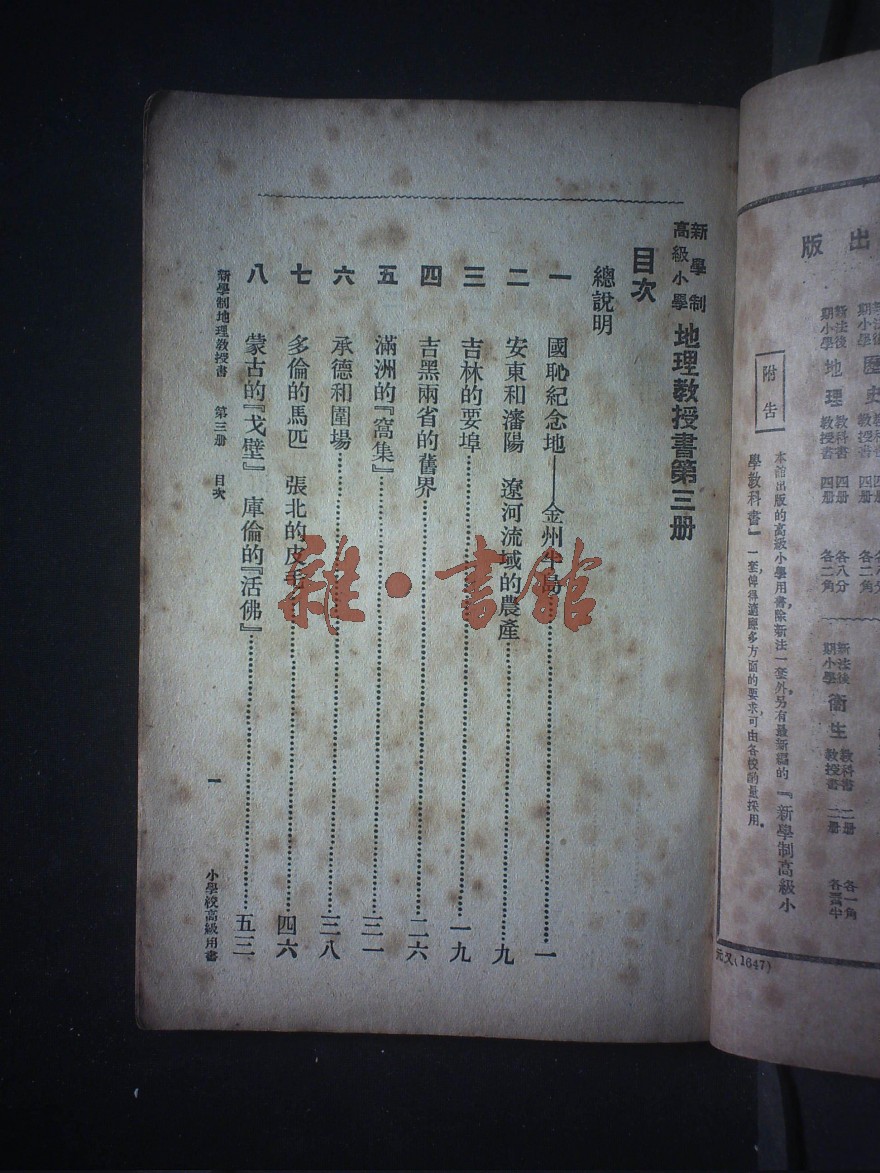 出版
新法後期小學 地理 教科書 四册 各八分
教授書 四册 各二角
新法後期小學 衞生 教科書 二册 各一角
教授書 二册 各壹牛
附告
本館出版的高級小學用書，除新法一套外，另有最新編的『新學制高級小
學教科書』一套，俾得適應多方面的要求，可由各校酌量採用。
元又(1647)
新學制高級小學 地理教授書第三册
目次
總說明
一 國恥紀念地——金州半島 一
二 安東和瀋陽 遼河流域的農產 九
三 吉林的要埠 一九
四 吉黑兩省的舊界 二六
五 滿洲的『窩集』 三一
六 承德和圍場 三八
七 多倫的馬匹 張北的皮毛 四六
八 蒙古的『戈壁』 庫倫的『活佛』 五三
新學制地理教授書 第三册 目次
一
小學校高級用書
雜·書館